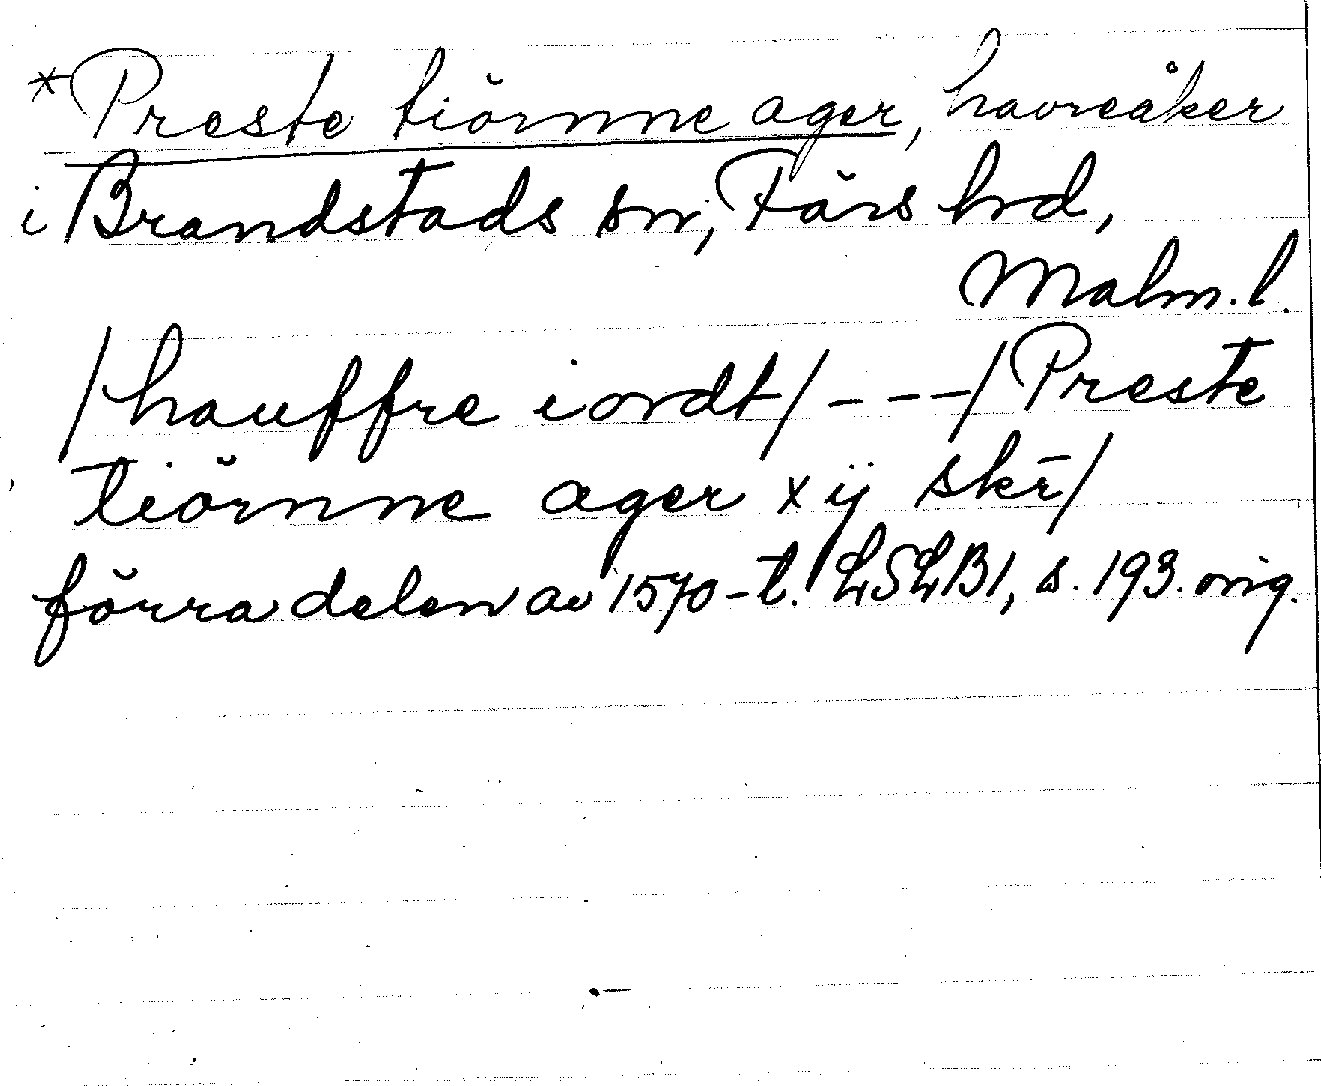 *Preste tiörnne ager, havreåker
i Brandstads sn, Färs hd,
Malm. l.
/hauffre iordt/ - - - / Preste
tiörnne ager x ij skr̄/
förra delen av 1570-t. LSLB1, s. 193. orig.